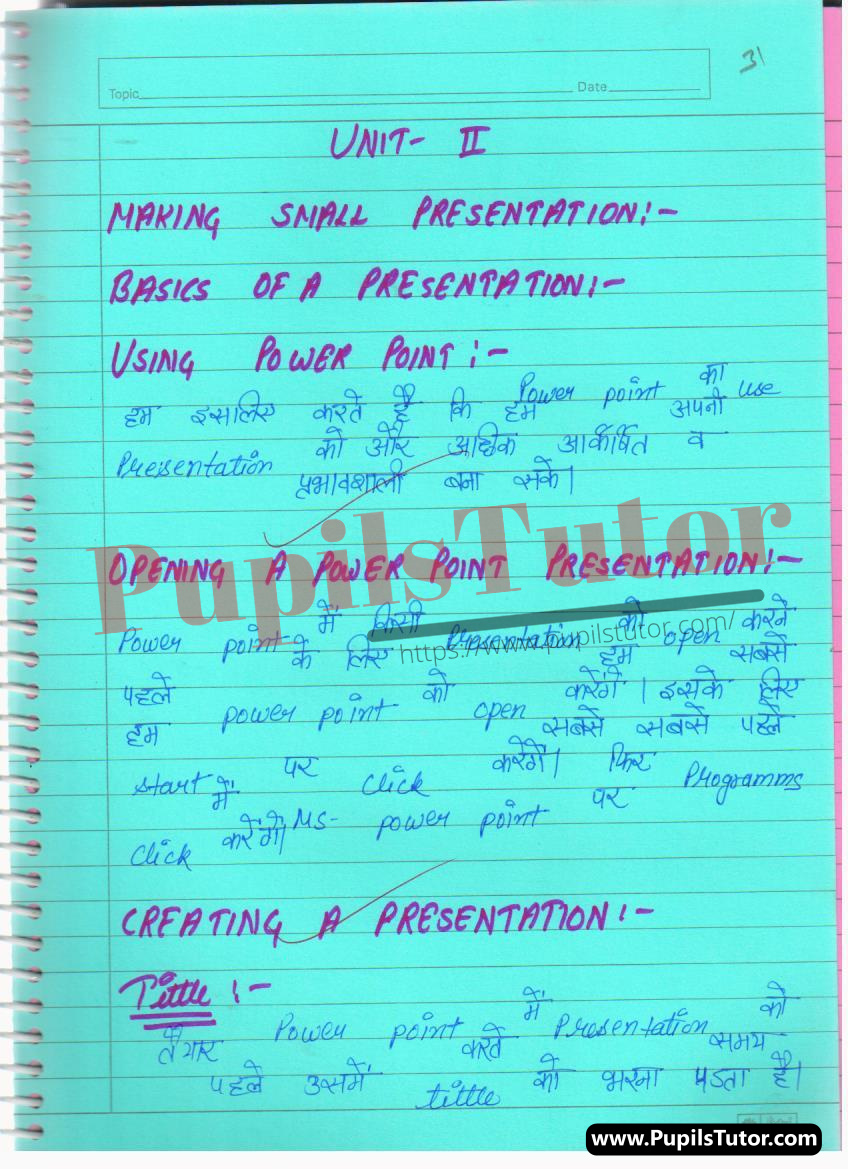 31
Topic Date
UNIT- II
MAKING SMALL PRESENTATION:-
BASICS OF A PRESENTATION:-
USING POWER POINT:-
हम इसलिए करते है कि हम Power point का use अपनी
Presentation को और अधिक आर्कषित व
प्रभावशाली बना सके।
PupilsTutor
OPENING A POWER POINT PRESENTATION:-
https://www.pupilstutor.com/
Power point में किसी Presentation को open करने
पहले के लिए हम सबसे
हम power point को open करेंगे। इसके लिए
start पर click करेगें। सबसे सबसे पहले
में फिर Programms
click करेंगे। MS- power point पर
CREATING A PRESENTATION:-
Tittle:-
तैयार Power point में करते Presentation को समय
पहले उसमें tittle को भरना पडता है।
www.PupilsTutor.com